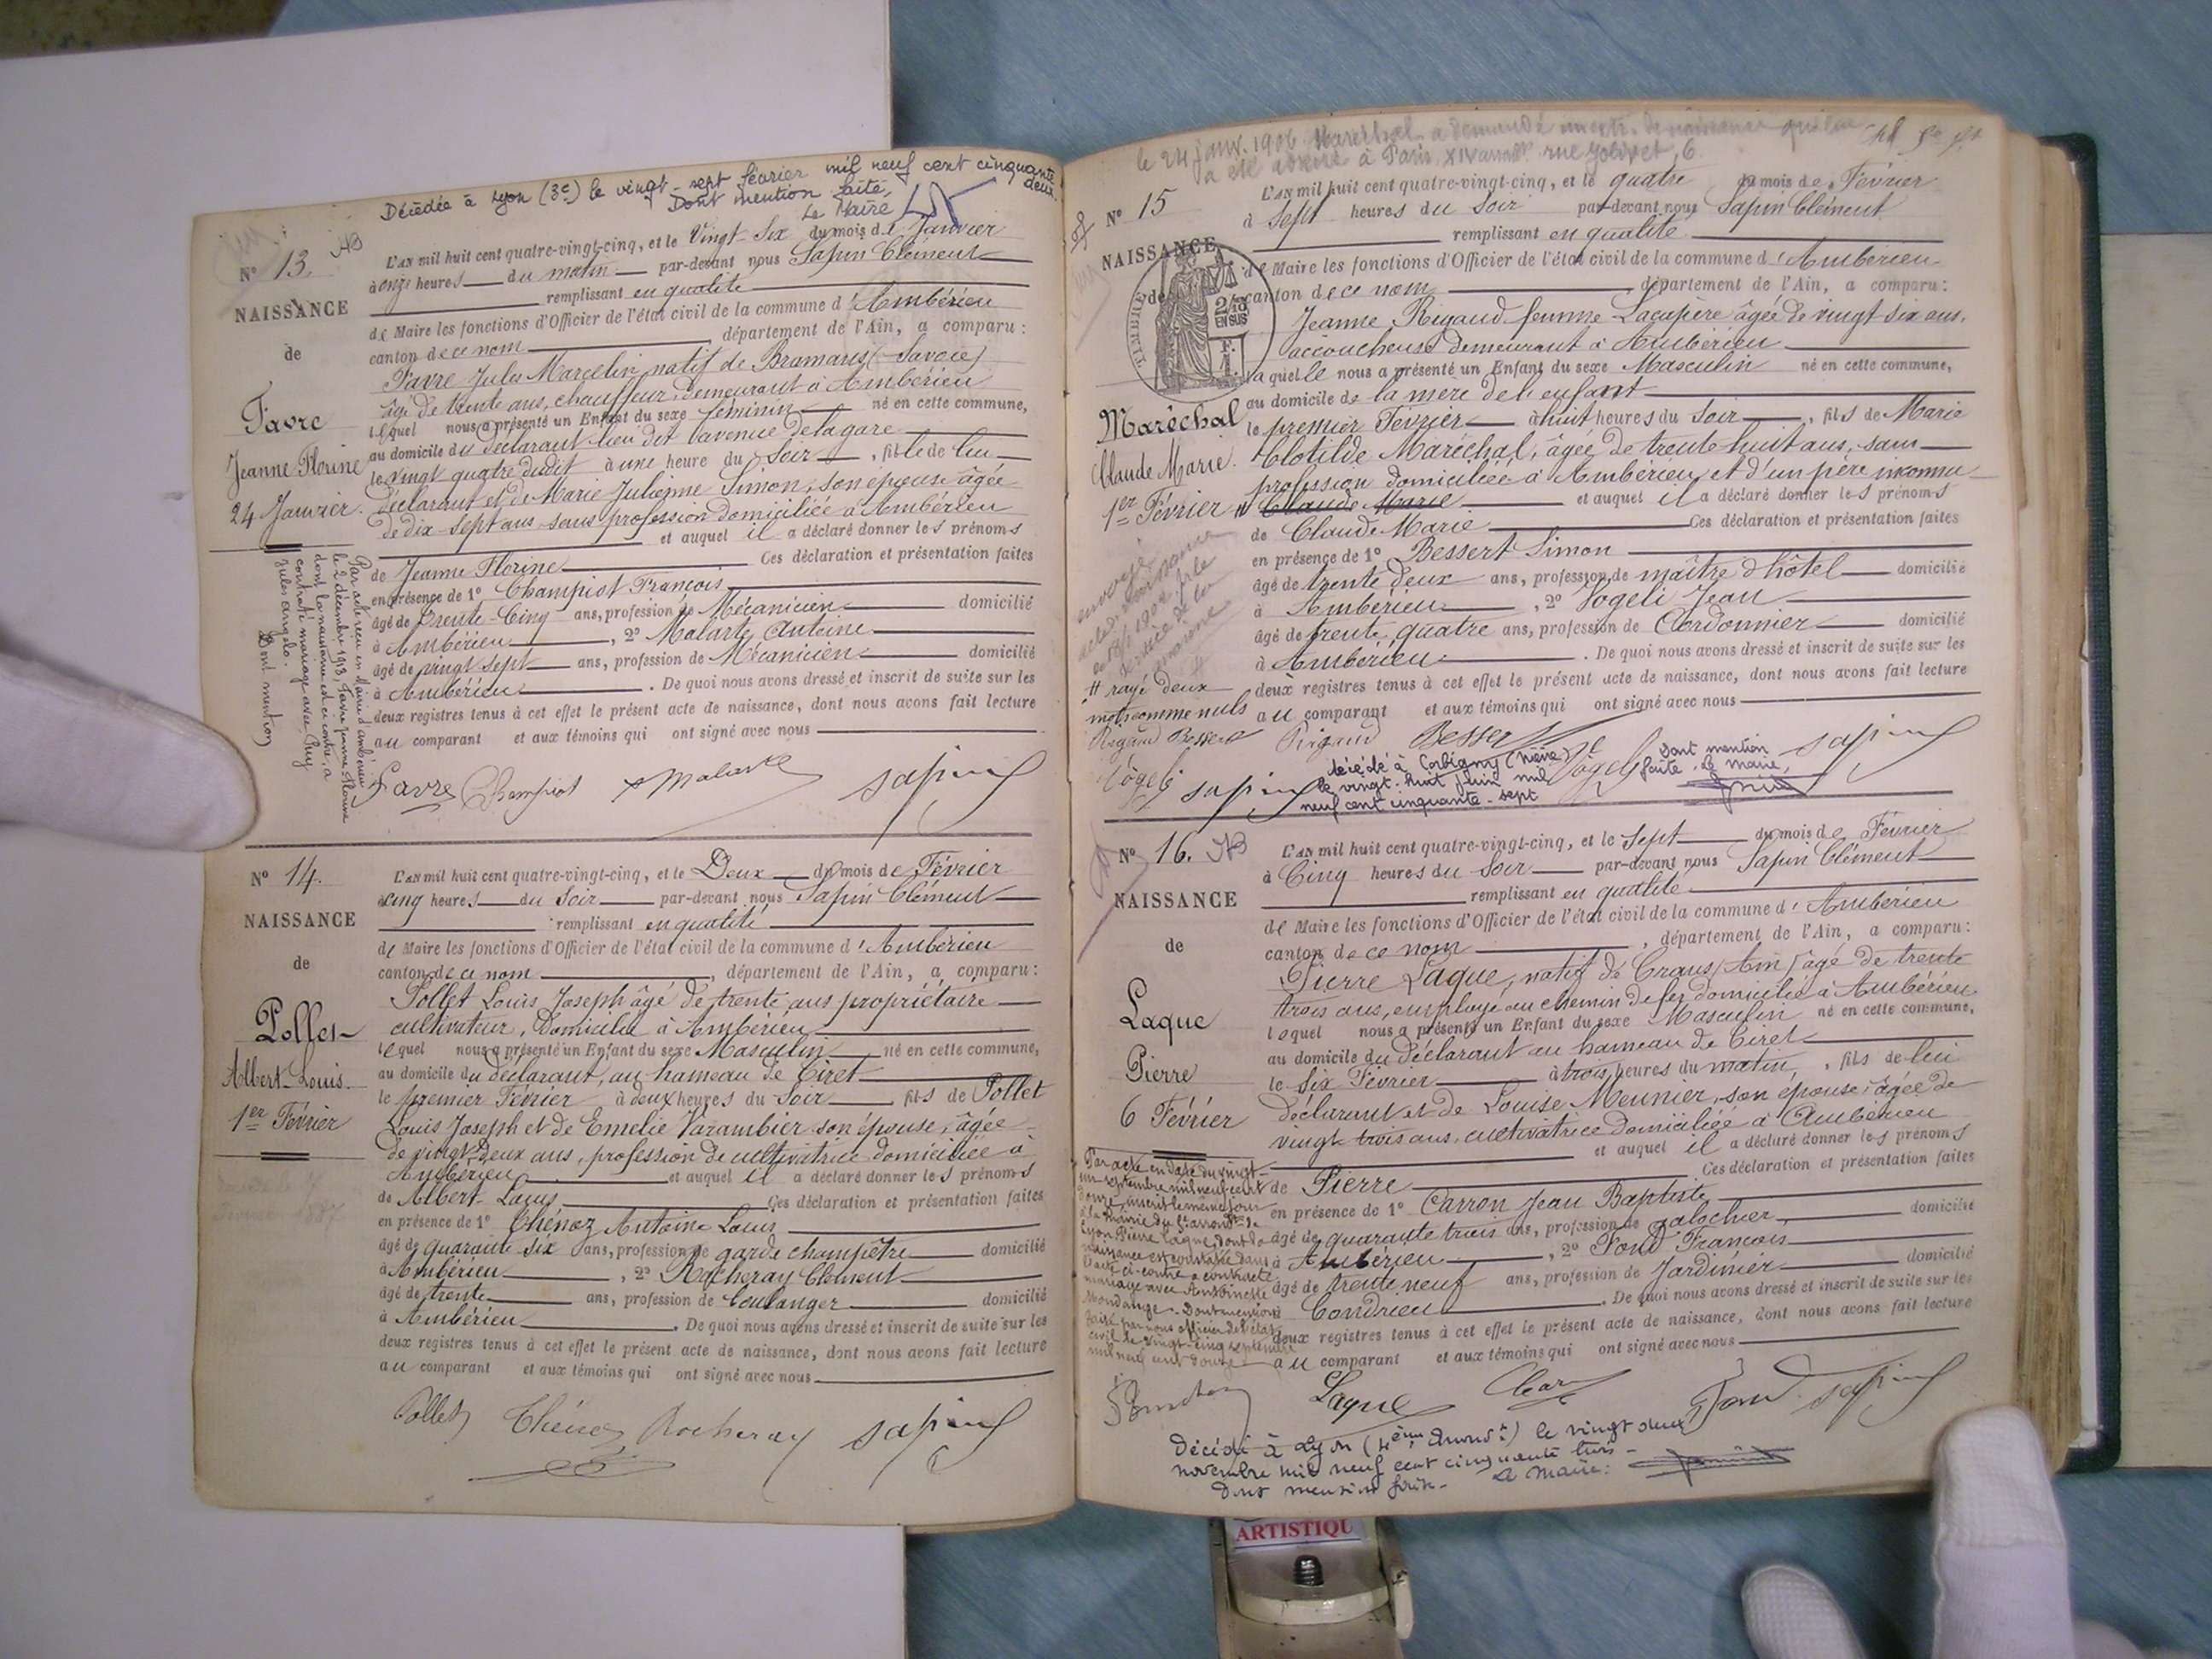 Décédée à Lyon (3e) le vingt-sept février mil neuf cent cinquante
deux. Dont mention faite,
Le Maire
N° 13.
NAISSANCE
de
Favre
Jeanne Florine
24 Janvier.
L'an mil huit cent quatre-vingt-cinq, et le Vingt-Six du mois de Janvier
à onze heures du matin par-devant nous Sapin Clément
remplissant en qualité
de Maire les fonctions d'Officier de l'état civil de la commune d'Ambérieu
canton de ce nom, département de l'Ain, a comparu :
Favre Jules Marcelin natif de Bramans (Savoie)
âgé de trente ans, chauffeur, demeurant à Ambérieu
lequel nous a présenté un Enfant du sexe féminin né en cette commune,
au domicile du déclarant lieu dit l'avenue de la gare
le vingt quatre dudit à une heure du Soir, fille de lui
déclarant et de Marie Julienne Simon, son épouse âgée
de dix-sept ans sans profession domiciliée à Ambérieu
et auquel il a déclaré donner les prénoms
de Jeanne Florine Ces déclaration et présentation faites
en présence de 1° Champiot François
âgé de Trente-Cinq ans, profession de Mécanicien domicilié
à Ambérieu, 2° Malarte Antoine
âgé de vingt sept ans, profession de Mécanicien domicilié
à Ambérieu. De quoi nous avons dressé et inscrit de suite sur les
deux registres tenus à cet effet le présent acte de naissance, dont nous avons fait lecture
au comparant et aux témoins qui ont signé avec nous
Par acte reçu en Mairie d'Ambérieu
le 2 décembre 1913, Favre Jeanne Florine
dont la naissance est ci-contre, a
contracté mariage avec Puy
Jules Angelo.
Dont mention
Favre Champiot Malarte Sapin
N° 14.
NAISSANCE
de
Pollet
Albert-Louis.
1er Février
L'an mil huit cent quatre-vingt-cinq, et le Deux du mois de Février
à cinq heures du Soir par-devant nous Sapin Clément
remplissant en qualité
de Maire les fonctions d'Officier de l'état civil de la commune d'Ambérieu
canton de ce nom, département de l'Ain, a comparu :
Pollet Louis Joseph âgé de trente ans propriétaire
cultivateur, Domicilié à Ambérieu
lequel nous a présenté un Enfant du sexe Masculin né en cette commune,
au domicile du déclarant, au hameau de Tiret
le premier Février à deux heures du Soir, fils de Pollet
Louis Joseph et de Emélie Varambier son épouse, âgée
de vingt deux ans, profession de cultivatrice domiciliée à
Ambérieu et auquel il a déclaré donner les prénoms
de Albert-Louis Ces déclaration et présentation faites
en présence de 1° Thénoz Antoine Louis
âgé de quarante-six ans, profession de garde champêtre domicilié
à Ambérieu, 2° Rocheray Clément
âgé de trente ans, profession de boulanger domicilié
à Ambérieu. De quoi nous avons dressé et inscrit de suite sur les
deux registres tenus à cet effet le présent acte de naissance, dont nous avons fait lecture
au comparant et aux témoins qui ont signé avec nous
Pollet Thénoz Rocheray Sapin
le 24 janv. 1906 Maréchal a demandé
à Paris XIV rue Jolivet, 6.
N° 15
NAISSANCE
de
Maréchal
Claude Marie.
1er Février
TIMBRE
2/10
EN SUS
L'an mil huit cent quatre-vingt-cinq, et le quatre du mois de Février
à Sept heures du Soir par-devant nous Sapin Clément
remplissant en qualité
de Maire les fonctions d'Officier de l'état civil de la commune d'Ambérieu
canton de ce nom, département de l'Ain, a comparu :
Jeanne Rigaud femme Lacapère âgée de vingt six ans,
accoucheuse demeurant à Ambérieu
laquelle nous a présenté un Enfant du sexe Masculin né en cette commune,
au domicile de la mère de l'enfant
le premier Février à huit heures du Soir, fils de Marie
Clotilde Maréchal, âgée de trente-huit ans, sans
profession domiciliée à Ambérieu et d'un père inconnu
Claude Marie et auquel il a déclaré donner les prénoms
de Claude Marie Ces déclaration et présentation faites
en présence de 1° Bessert Simon
âgé de trente deux ans, profession de maître d'hôtel domicilié
à Ambérieu, 2° Vogeli Jean
âgé de trente quatre ans, profession de Cordonnier domicilié
à Ambérieu. De quoi nous avons dressé et inscrit de suite sur les
deux registres tenus à cet effet le présent acte de naissance, dont nous avons fait lecture
au comparant et aux témoins qui ont signé avec nous
# rayé deux
mots comme nuls
Rigaud Bessert
Vögeli Sapin
Rigaud Bessert Vögeli Sapin
décédé à Corbigny (Nièvre)
le vingt-huit juin mil
neuf cent cinquante-sept
Dont mention
faite. Le maire,
N° 16.
NAISSANCE
de
Laque
Pierre
6 Février
L'an mil huit cent quatre-vingt-cinq, et le Sept du mois de Février
à Cinq heures du Soir par-devant nous Sapin Clément
remplissant en qualité
de Maire les fonctions d'Officier de l'état civil de la commune d'Ambérieu
canton de ce nom, département de l'Ain, a comparu :
Pierre Laque, natif de Crans (Ain) âgé de trente
trois ans, employé au chemin de fer domicilié à Ambérieu
lequel nous a présenté un Enfant du sexe Masculin né en cette commune,
au domicile du déclarant au hameau de Tiret
le Six Février à trois heures du matin, fils de lui
déclarant et de Louise Meunier, son épouse, âgée de
vingt-trois ans, cultivatrice domiciliée à Ambérieu
et auquel il a déclaré donner les prénoms
de Pierre Ces déclaration et présentation faites
en présence de 1° Carron Jean Baptiste
âgé de quarante trois ans, profession de galochier, domicilié
à Ambérieu, 2° Fond François
âgé de trente neuf ans, profession de Jardinier domicilié
à Condrieu. De quoi nous avons dressé et inscrit de suite sur les
deux registres tenus à cet effet le présent acte de naissance, dont nous avons fait lecture
au comparant et aux témoins qui ont signé avec nous
Par acte en date du vingt-
un septembre mil neuf cent
douze, inscrit le même jour
à la Mairie du arrondt de
Lyon, Pierre Laque, dont la
naissance est constatée dans
l'acte ci-contre a contracté
mariage avec Antoinette
Mondange. Dont mention
faite par nous officier de l'état
civil le vingt-cinq septembre
mil neuf cent douze
Laque Carron Fond Sapin
Décédé à Lyon (4ème Arrondt) le vingt deux
novembre mil neuf cent cinquante trois-
Dont mention faite- Le Maire:
ARTISTIQU